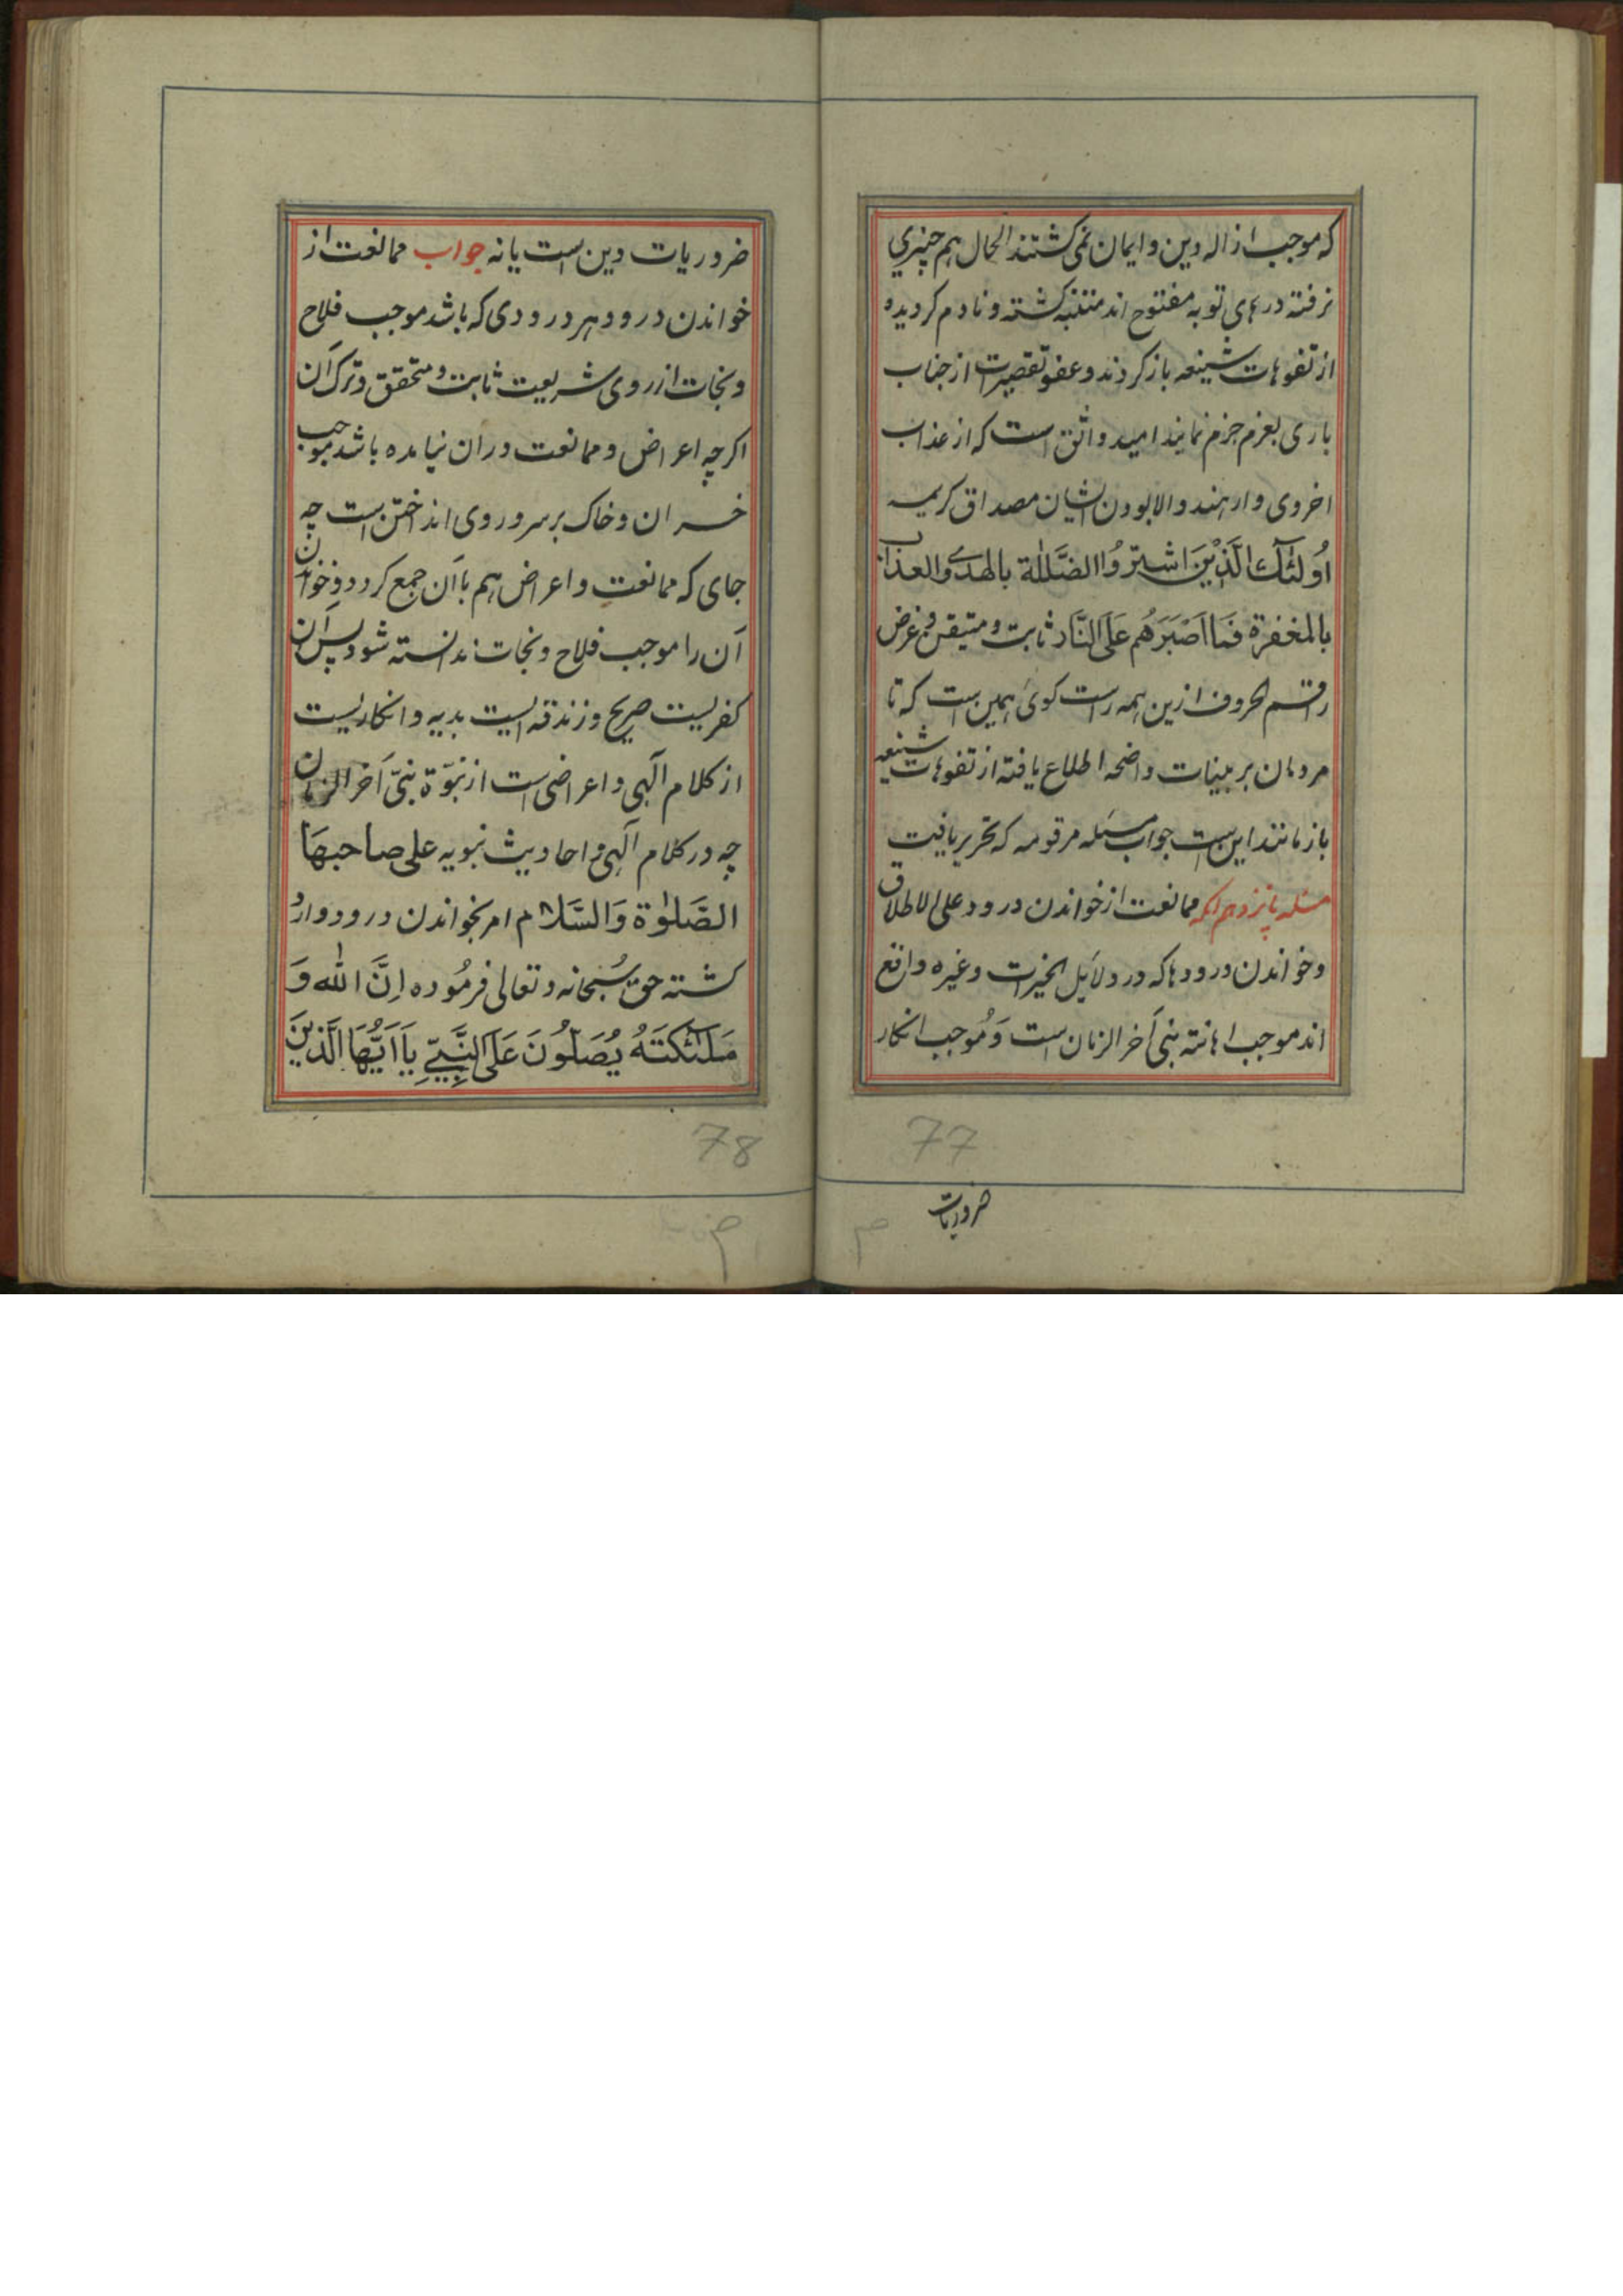 که موجب ازاله دین و ایمان نمی کشتند الحال هم چیزی
نرفته درهای توبه مفتوح اند متنبه کشته و نادم کردیده
از تفوهات شنیعه باز کردند و عفو تقصیرات از جناب
باری بعزم جزم نمایند امید واثق است که از عذاب
اخروی وارهند والا بودن ایشان مصداق کریمه
اُولئٓك الَّذِیْنَ اشترَوُا الضَّلٰلة بالهدے والعذاب
بالمغفرة فَمَا اَصْبَرَهُم عَلَی النَّار ثابت و متیقن و غرض
راقم الحروف ازین همه راست کوئی همین است که تا
مردمان بر بینات واضحه اطلاع یافته از تفوهات شنیعه
باز مانند این است جواب مسئله مرقومه که تحریر یافت
مسئله پانزدهم آنکه ممانعت از خواندن درود علی الاطلاق
وخواندن درودها که در دلائل الخیرات وغیره واقع
اند موجب اهانته نبی آخر الزمان است وَمُوجب انکار
77
ضروریات
ضروریات دین است یا نه جواب ممانعت از
خواندن درود هر درودی که باشد موجب فلاح
ونجات از روی شریعت ثابت و متحقق و ترک آن
اکرچه اعراض و ممانعت دران نیامده باشد موجب
خسران و خاک بر سر و روی انداختن است چه
جای که ممانعت و اعراض هم با آن جمع کردد و خواندن
آن را موجب فلاح و نجات ندانسته شود پس آن
کفریست صریح و زندقه ایست بدیه و انکاریست
از کلام الٓهی و اعراضی است از نبوّة نبیّ آخر الزمان
چه در کلام الٓهی و احادیث نبویه علی صاحبهَا
الصَّلوٰة وَالسَّلام امر بخواندن درود وارد
کشته حق سُبحانه و تعالی فرمُوده اِنَّ الله وَ
مَلٰئکَتَهُ یُصَلّوُنَ عَلَی النَّبِیّ یَا اَیُّهَا الَّذینَ
78